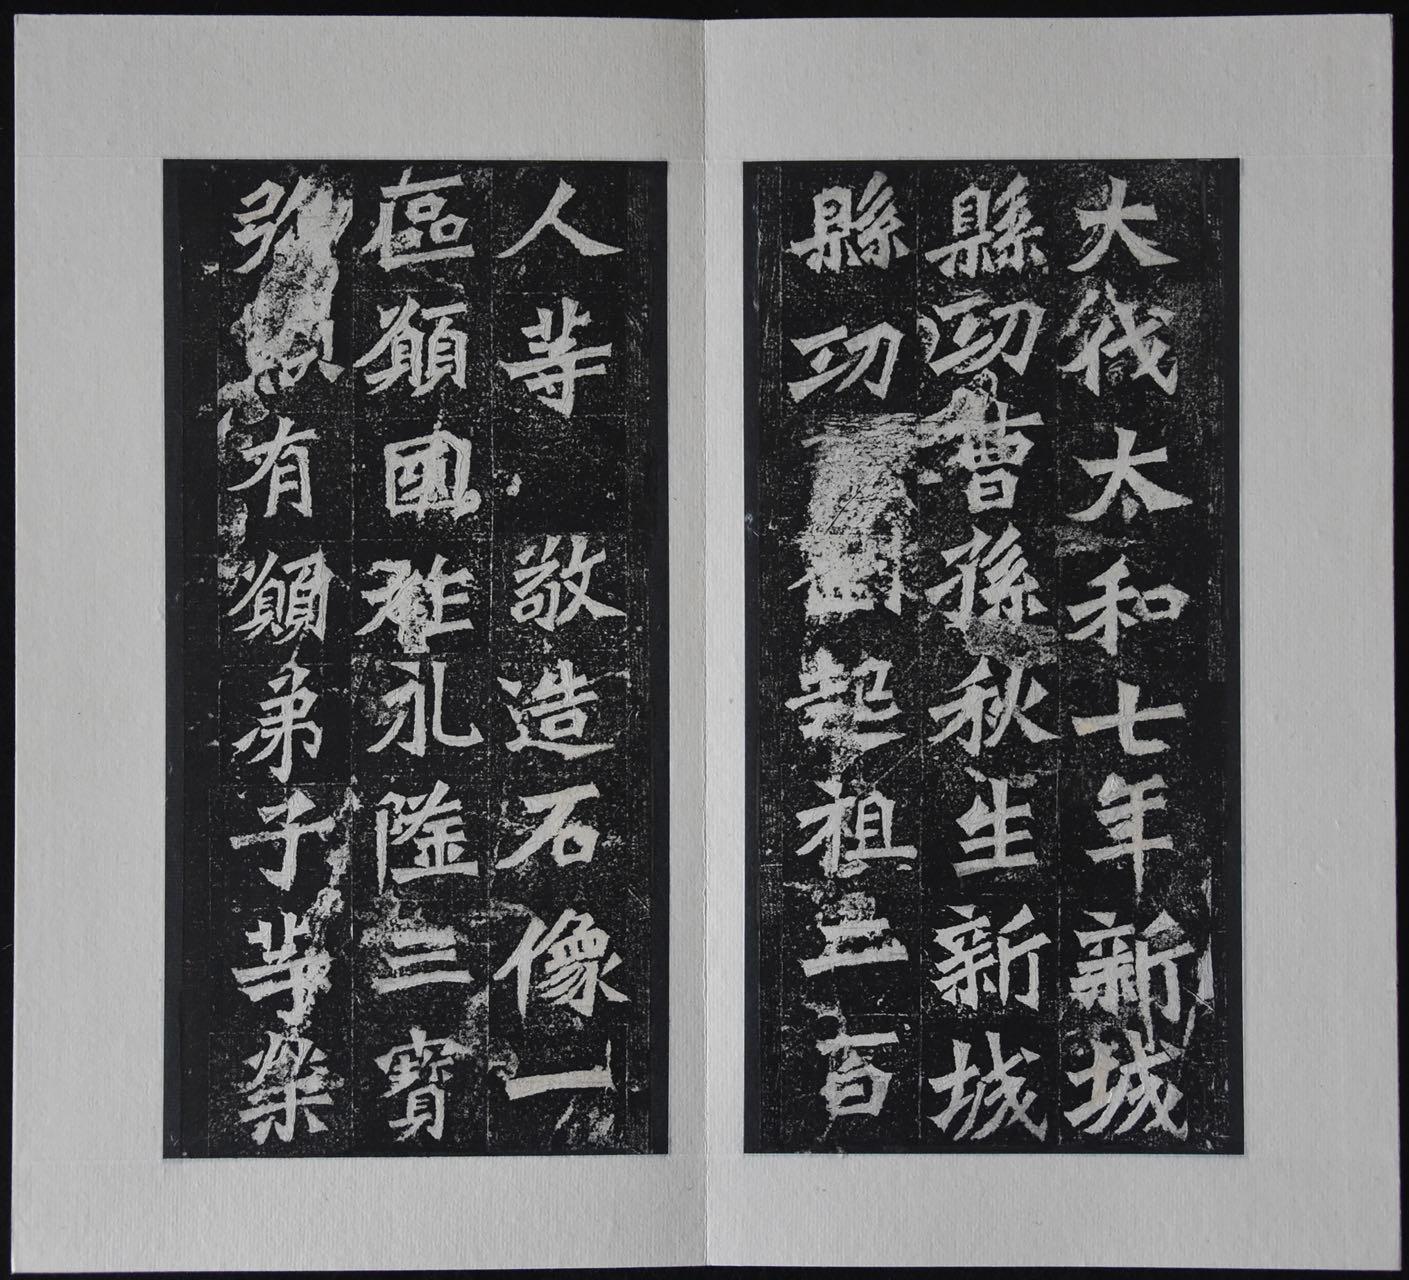 大伐太和七年新城
縣功曹孫秋生新城
縣功劉起祖二百
人等敬造石像一
區願國祚永隆三寶
弥顯有願弟子等榮